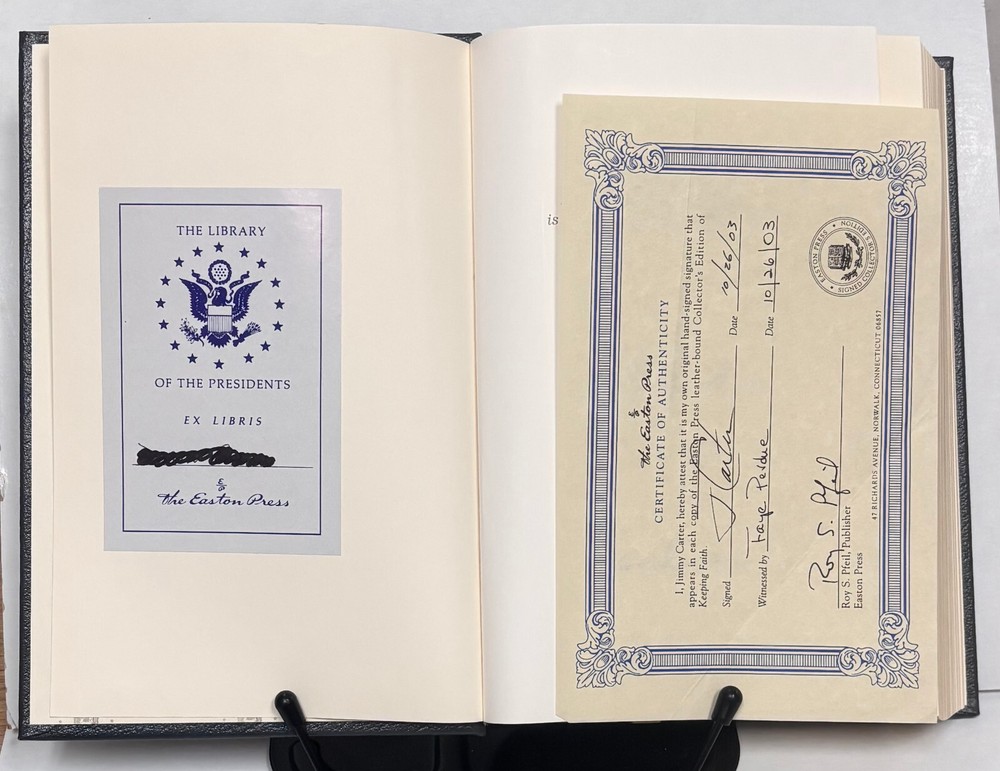 THE LIBRARY
OF THE PRESIDENTS
EX LIBRIS
The Easton Press
is
The Easton Press
CERTIFICATE OF AUTHENTICITY
I, Jimmy Carter, hereby attest that it is my own original hand-signed signature that
appears in each copy of the Easton Press leather-bound Collector's Edition of
Keeping Faith.
Signed J Carter Date 10/26/03
Witnessed by Faye Perdue Date 10/26/03
Roy S. Pfeil
Roy S. Pfeil, Publisher
Easton Press
EASTON PRESS
SIGNED COLLECTOR'S EDITION
47 RICHARDS AVENUE, NORWALK, CONNECTICUT 06857